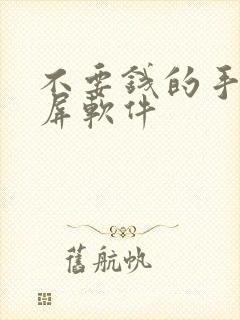 不要錢的手
屏軟件
舊航帆